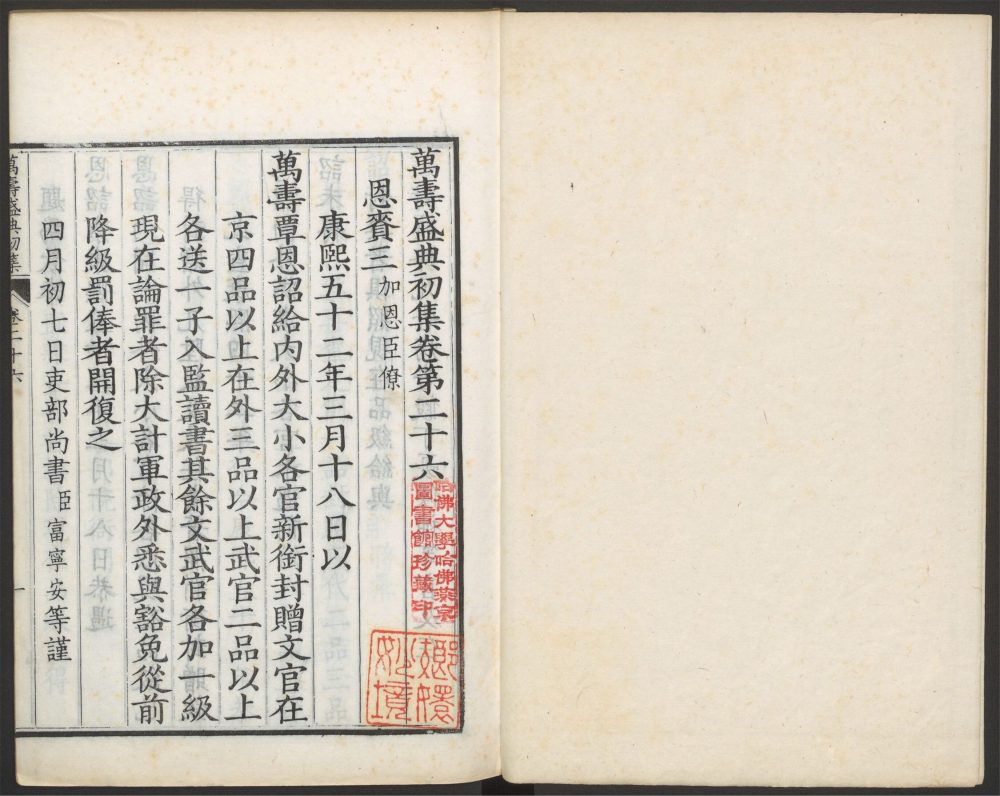 萬壽盛典初集卷第二十六
恩賚三 加恩臣僚
康熙五十二年三月十八日以
萬壽覃恩詔給內外大小各官新銜封贈文官在
京四品以上在外三品以上武官二品以上
各送一子入監讀書其餘文武官各加一級
現在論罪者除大計軍政外悉與豁免從前
降級罰俸者開復之
四月初七日吏部尚書臣富寧安等謹
萬壽盛典初集 卷二十六 一
哈佛大學哈佛燕京
圖書館珍藏印
嫏嬛
妙境